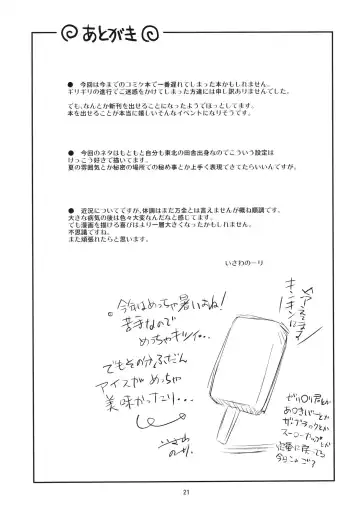 あとがき
● 今回は今までのコミケ本で一番遅れてしまった本かもしれません。
ギリギリの進行でご迷惑をかけてしまった方達には申し訳ありませんでした。
でも、なんとか新刊を出せることになったようでほっとしてます。
本を出せることが本当に嬉しいそんなイベントになりそうです。
● 今回のネタはもともと自分も東北の田舎出身なのでこういう設定は
けっこう好きで描いてます。
夏の雰囲気とか秘密の場所での秘め事とか上手く表現できてたらいいんですが。
● 近況についてですが、体調はまだ万全とは言えませんが概ね順調です。
大きな病気の後は色々大変なんだなと感じてます。
でも漫画を描ける喜びはより一層大きくなった気もします。
不思議ですね。
また頑張れたらと思います。
いさわのーり
今年はめっちゃ暑いよね!
苦手なので
めっちゃキツイ…
でもその分ふだん
アイスがめっちゃ
美味かったり…
いさわ
のーり
アイスを
キンキンに
ガリガリ君とか
あずきバーとか
ザ・ブラックとか
スーパーカップとか
21